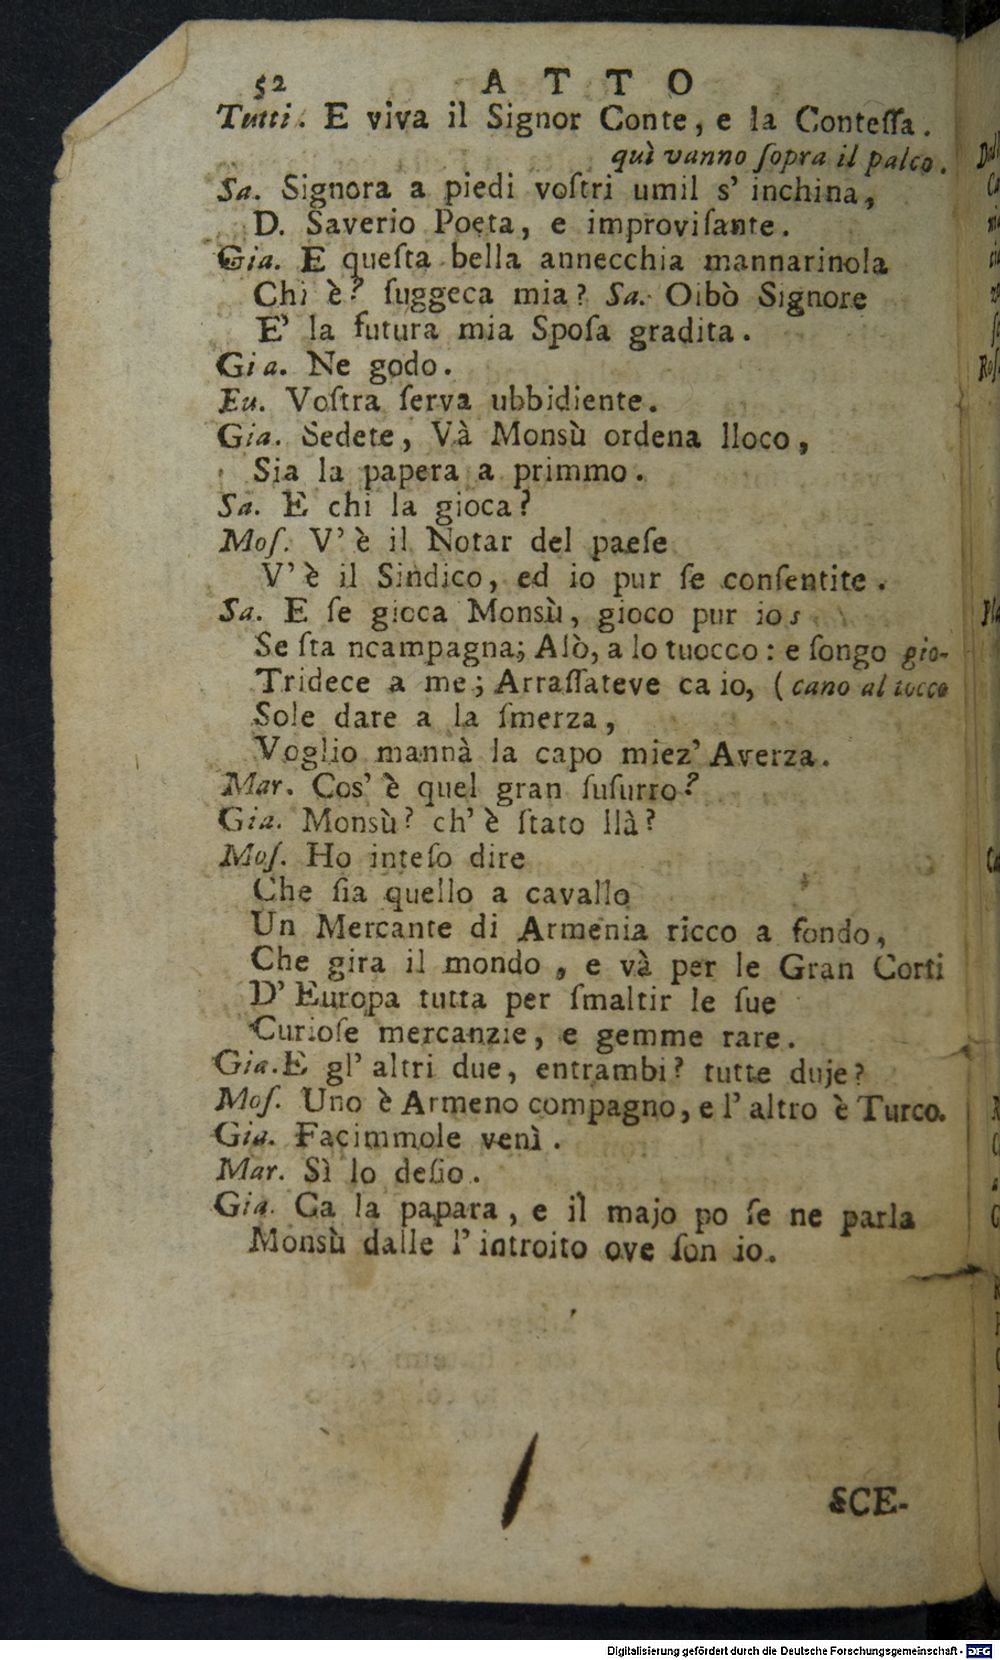 52 ATTO
Tutti. E viva il Signor Conte, e la Conteſſa.
quì vanno ſopra il palco.
Sa. Signora a piedi voſtri umil s' inchina,
D. Saverio Poeta, e improviſante.
Gia. E queſta bella annecchia mannarinola
Chi è? ſuggeca mia? Sa. Oibò Signore
E' la futura mia Spoſa gradita.
Gia. Ne godo.
Eu. Voſtra ſerva ubbidiente.
Gia. Sedete, Và Monsù ordena lloco,
Sia la papera a primmo.
Sa. E chi la gioca?
Moſ. V' è il Notar del paeſe
V' è il Sindico, ed io pur ſe conſentite.
Sa. E ſe gioca Monsù, gioco pur io s
Se ſta ncampagna; Alò, a lo tuocco: e ſongo gio-
Tridece a me; Arraſſateve ca io, (cano al tocco
Sole dare a la ſmerza,
Voglio mannà la capo miez' Averza.
Mar. Cos' è quel gran ſuſurro?
Gia. Monsù? ch' è ſtato llà?
Moſ. Ho inteſo dire
Che ſia quello a cavallo
Un Mercante di Armenia ricco a fondo,
Che gira il mondo, e và per le Gran Corti
D' Europa tutta per ſmaltir le ſue
Curioſe mercanzie, e gemme rare.
Gia. E gl' altri due, entrambi? tutte duje?
Moſ. Uno è Armeno compagno, e l' altro è Turco.
Gia. Facimmole venì.
Mar. Sì lo deſio.
Gia. Ca la papara, e il majo po ſe ne parla
Monsù dalle l' introito ove ſon io.
SCE-
Digitalisierung gefördert durch die Deutsche Forschungsgemeinschaft - DFG